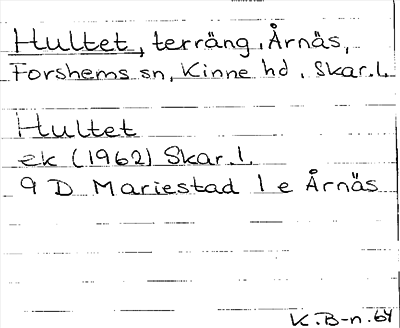 Hultet, terräng, Årnäs,
Forshems sn, Kinne hd, Skar.l.
Hultet
ek (1962) Skar.l.
9 D Mariestad 1 e Årnäs
K.B-n.64